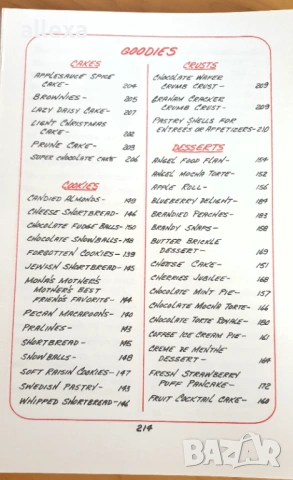 allexa
GOODIES
CAKES
APPLESAUCE SPICE
CAKE- 204
BROWNIES- 205
LAZY DAISY CAKE- 207
LIGHT CHRISTMAS
CAKE- 202
PRUNE CAKE- 203
SUPER CHOCOLATE CAKE 206
COOKIES
CANDIED ALMONDS- 149
CHEESE SHORTBREAD- 146
CHOCOLATE FUDGE BALLS- 150
CHOCOLATE SNOWBALLS- 148
FORGOTTEN COOKIES- 139
JEWISH SHORTBREAD- 145
MONA'S MOTHER'S
MOTHER'S BEST
FRIEND'S FAVORITE- 144
PECAN MACAROONS- 140
PRALINES- 143
SHORTBREAD- 145
SNOWBALLS- 148
SOFT RAISIN COOKIES- 147
SWEDISH PASTRY- 143
WHIPPED SHORTBREAD- 146
CRUSTS
CHOCOLATE WAFER
CRUMB CRUST- 209
GRAHAM CRACKER
CRUMB CRUST- 209
PASTRY SHELLS FOR
ENTREES OR APPETIZERS- 210
DESSERTS
ANGEL FOOD FLAN- 154
ANGEL MOCHA TORTE- 152
APPLE ROLL- 156
BLUEBERRY DELIGHT- 184
BRANDIED PEACHES- 183
BRANDY SNAPS- 158
BUTTER BRICKLE
DESSERT- 169
CHEESE CAKE- 151
CHERRIES JUBILEE- 168
CHOCOLATE MINT PIE- 157
CHOCOLATE MOCHA TORTE- 166
CHOCOLATE TORTE ROYALE- 180
COFFEE ICE CREAM PIE- 161
CREME DE MENTHE
DESSERT- 164
FRESH STRAWBERRY
PUFF PANCAKE- 172
FRUIT COCKTAIL CAKE- 160
214
BAZAR.BG